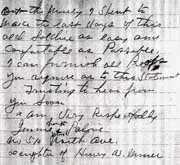 the money I spent to
Make the last days of this
old Soldier as easy and
Comfortable as Possible
I can furnish all Proof
you require as to this Statement
Trusting to hear from
you Soon
I am Very Respectfully
Jennie
Ave
daughter of Henry W.